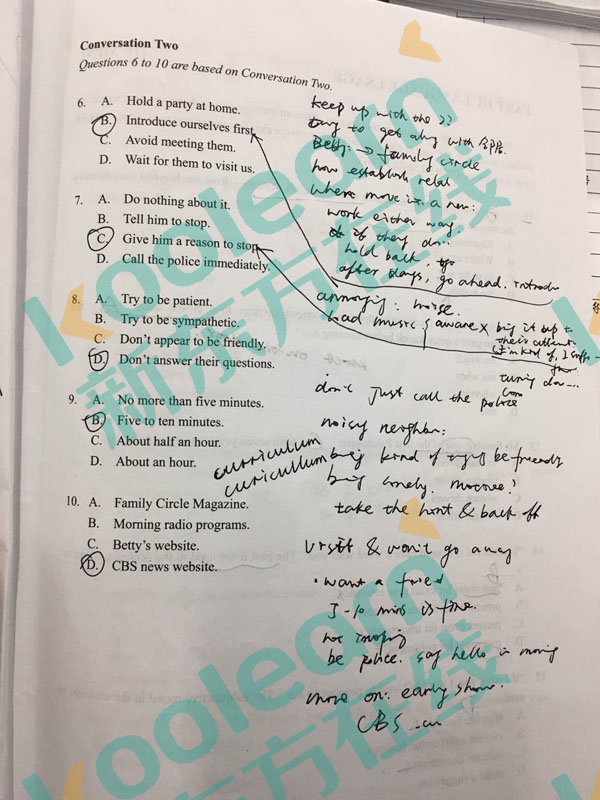 Conversation Two
Questions 6 to 10 are based on Conversation Two.
6. A. Hold a party at home.
B. Introduce ourselves first.
C. Avoid meeting them.
D. Wait for them to visit us.
7. A. Do nothing about it.
B. Tell him to stop.
C. Give him a reason to stop.
D. Call the police immediately.
8. A. Try to be patient.
B. Try to be sympathetic.
C. Don't appear to be friendly.
D. Don't answer their questions.
9. A. No more than five minutes.
B. Five to ten minutes.
C. About half an hour.
D. About an hour.
10. A. Family Circle Magazine.
B. Morning radio programs.
C. Betty's website.
D. CBS news website.
keep up with the
to get with
Betty: → family circle
how establish relat
where move in a new:
work either way.
if they do
hold back.
after days, go ahead. introdu
annoying: noise.
loud music aware x bring it up to
don't just call the police
noisy neighbor:
curriculum
curicullum
being kind of be friendly
being lonely.
take the hint & back off
visit & won't go away
· want a friend
5-10 mins is fine.
be police. say hello in
move on: early show.
CBS
kooleam
新东方在线
kooleam
新东方在线